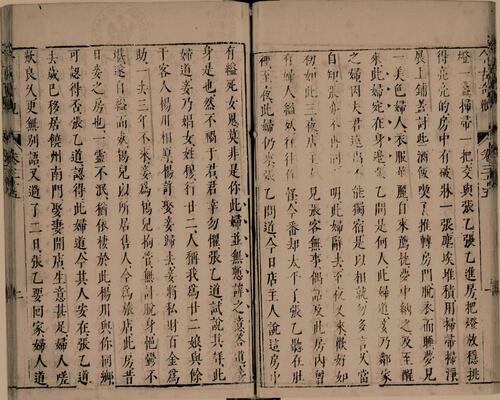 燈一盞掃帚一把交與張乙張乙進房把燈放穩挑
得亮亮的房中有破牀一張塵埃堆積用掃帚掃淨
展上鋪蓋討些酒飯喫了推轉房門脫衣而睡夢見
一美色婦人衣服華麗自來薦枕夢中納之及至醒
來此婦宛在身邊張乙問是何人此婦道妾乃鄰家
之婦因夫君遠出不能獨宿是以相就勿多言久當
自知張亦不再問天明此婦辭去至夜又來歡好如
初如此三夜店主人見張客無事偶話及此房內曾
今番却太平了張乙聽在肚
裡至夜此婦仍來張乙問道今日店主人說這房中
有縊死女鬼莫非是你此婦並無慙諱之意答道妾
身是也然不禍于君君幸勿懼張乙道試說其詳此
婦道妾乃娼女姓穆行廿二人稱我為廿二娘與餘
干客人楊川相厚楊許娶妾歸去妾將私財百金為
助一去三年不來妾為鴇兒拘管無計脫身悒鬱不
堪遂自縊而死鴇兒以所居售人今為旅店此房昔
日妾之房也一靈不泯猶依棲於此楊川與你同鄉
可認得否張乙道認得此婦道今其人安在張乙道
去歲已移居饒州南門娶妻開店生意甚足婦人嗟
歎良久更無別語又過了二日張乙要回家婦人道